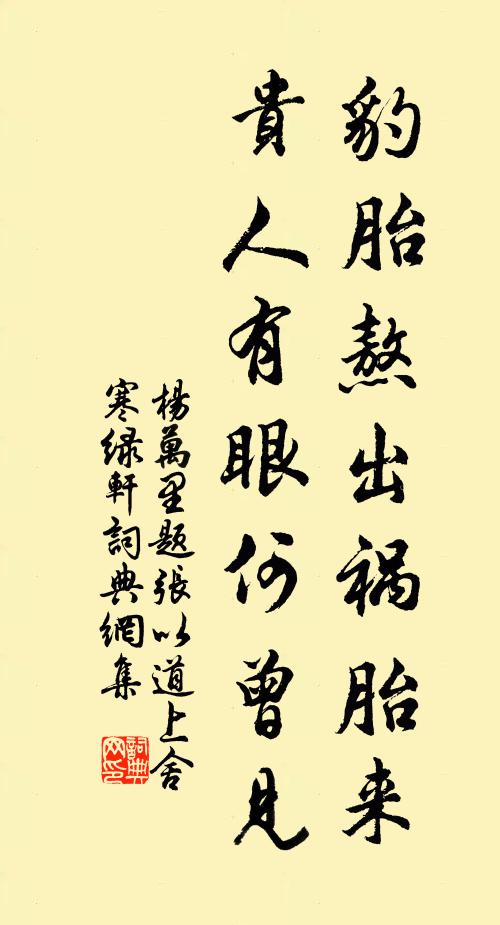 豹胎熬出祸胎来
貴人有眼何曾見
楊萬里题張以道上舍
寒緑軒詞典網集
詞典网印